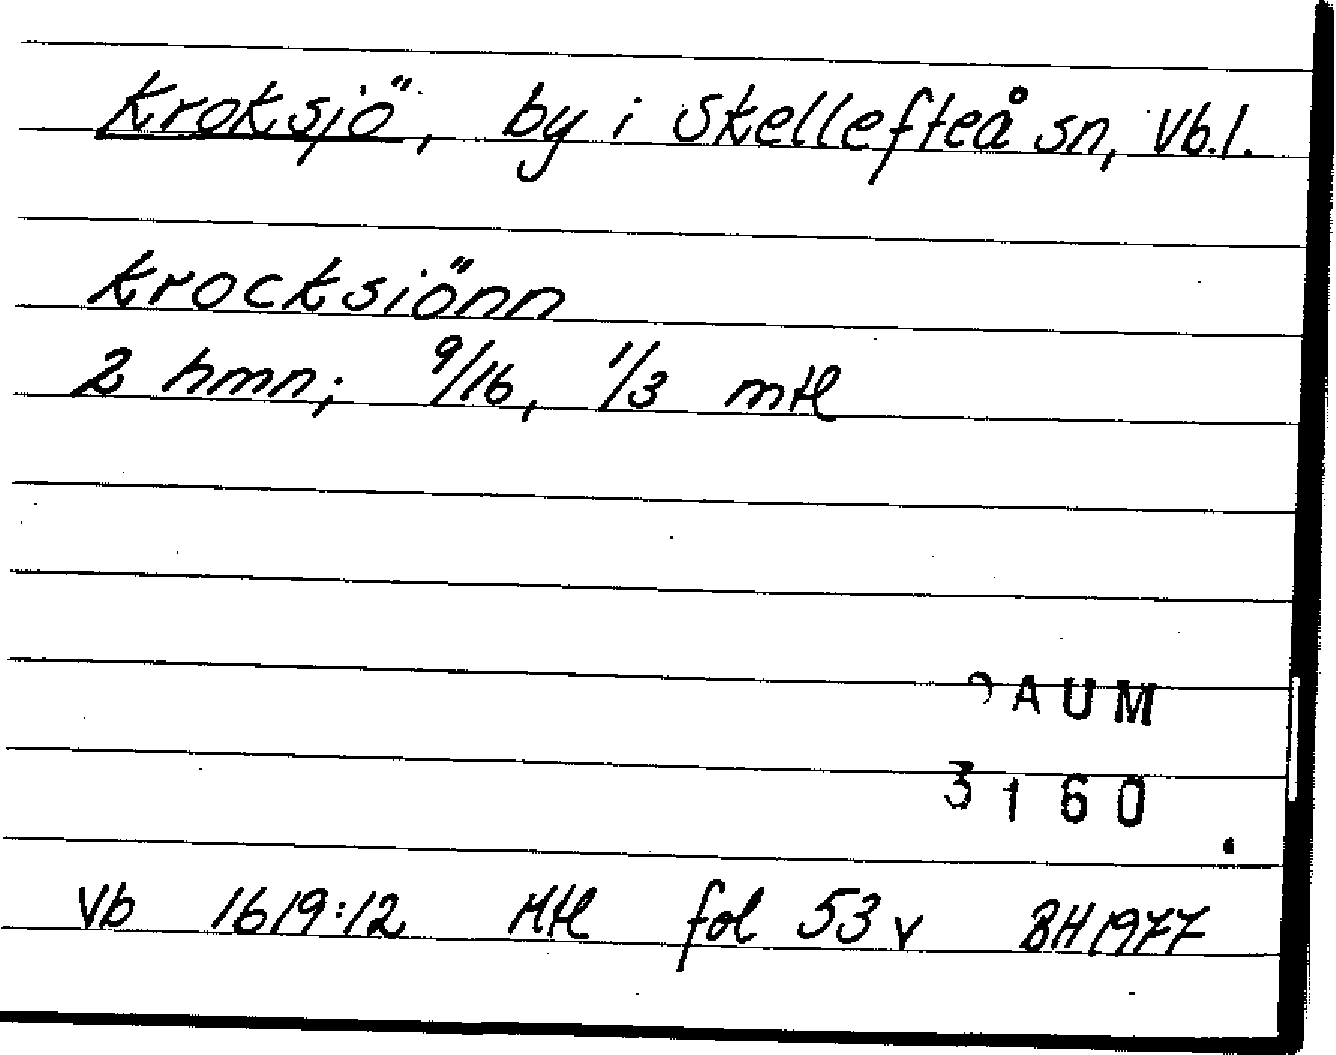 Kroksjö, by i Skellefteå sn, Vb.l.
Krocksiönn
2 hmn; 9/16, 1/3 mtl
DAUM
3160
Vb 1619:12 Mtl fol 53 v BH 1977